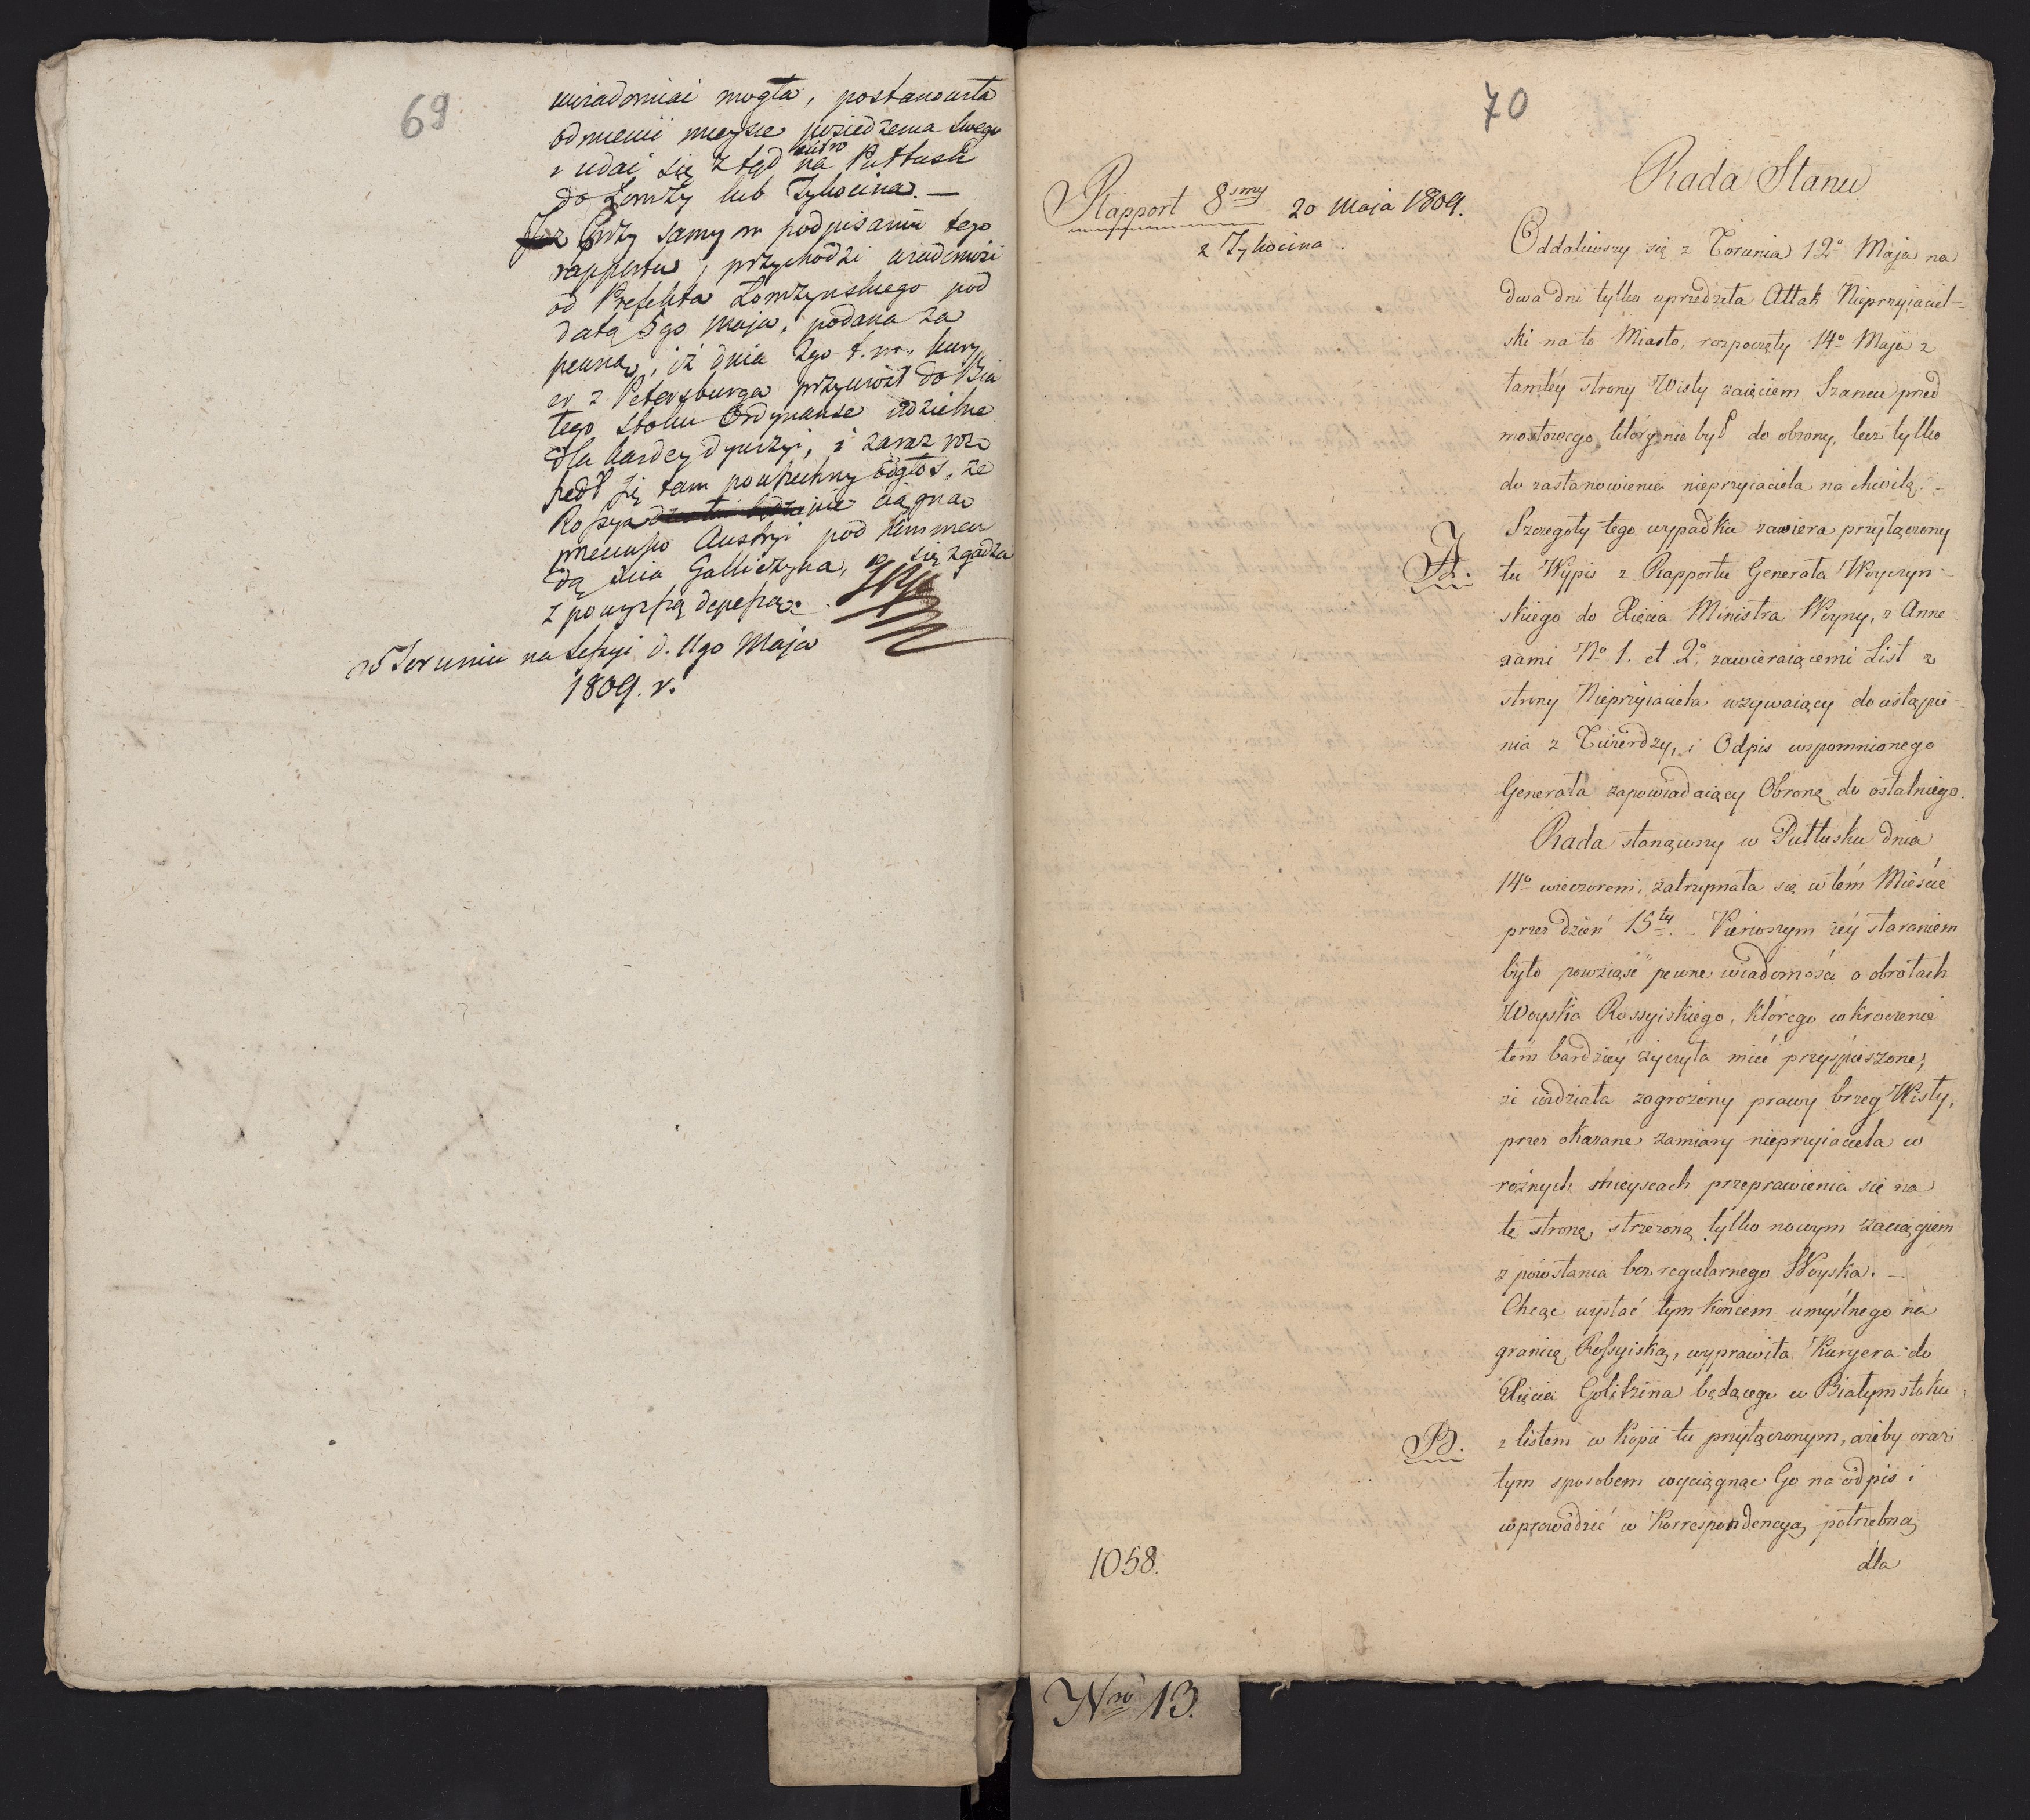 69
wiadomiać mogła, postanowiła
odmienić mieysce posiedzenia swego
jutro
i udać się z tąd na Pułtusk
do Łomży lub Tykocina. —
Przy samym podpisaniu tego
rapportu, przychodzi wiadomość
od Prefekta Łomżyńskiego pod
datą 5go maja, podana za
pewną, iż dnia 2go t. m. kury
er z Petersburga przywiózł do Bia
łego stoku Ordynanse oddzielne
dla każdey dywizyi, i zaraz roz
szedł się tam powszechny odgłos, że
Rossya nie ciągną
przeciwko Austryi pod kommen
dą Xcia Galliczyna, co się zgadza
z powyższą depeszą.
w Toruniu na Sessyi d. 11go Maja
1809. r.
70
Rada Stanu
Rapport 8smy 20 Maja 1809.
z Tykocina.
Oddaliwszy się z Torunia 12o Maja na
dwa dni tylko uprzedziła Attak Nieprzyiaciel-
ski na to Miasto, rozpoczęty 14o Maja z
tamtéy strony Wisły zaięciem Szańcu przed
mostowego, który nie był do obrony, lecz tylko
do zastanowienia nieprzyiaciela na chwilę. -
Szczegóły tego wypadku zawiera przyłączony
A. tu Wypis z Rapportu Generała Woyczyn-
skiego do Xięcia Ministra Woyny, z Anne-
xami No 1. et 2o, zawieraiącemi List z
strony Nieprzyiaciela wzywaiący do ustąpie-
nia z Twierdzy, i Odpis wspomnionego
Generała zapowiadaiący Obronę do ostatniego.
Rada stanąwszy w Pułtusku dnia
14o wieczorem, zatrzymała się w tém Mieście
przez dzień 15ty. - Pierwszym iéy staraniem
było powziąść pewne wiadomości o obrotach
Woyska Rossyiskiego, którego wkroczenie
tém bardziéy życzyła mieć przyśpieszone,
że widziała zagrożony prawy brzeg Wisły,
przez okazane zamiary nieprzyiaciela w
różnych mieyscach przeprawienia się na
tę stronę, strzeżoną tylko nowym zaciągiem
z powstania bez regularnego Woyska. —
Chcąc wysłać tym końcem umyślnego na
granicę Rossyiską, wyprawiła Kuryera do
Xięcia Golitzina będącego w Białymstoku
B. z listem w Kopii tu przyłączonym, ażeby oraz
tym sposobem wyciągnąć Go na odpis i
wprowadzić w Korrespondencyą potrzebną
dla
1058.
Nro 13.